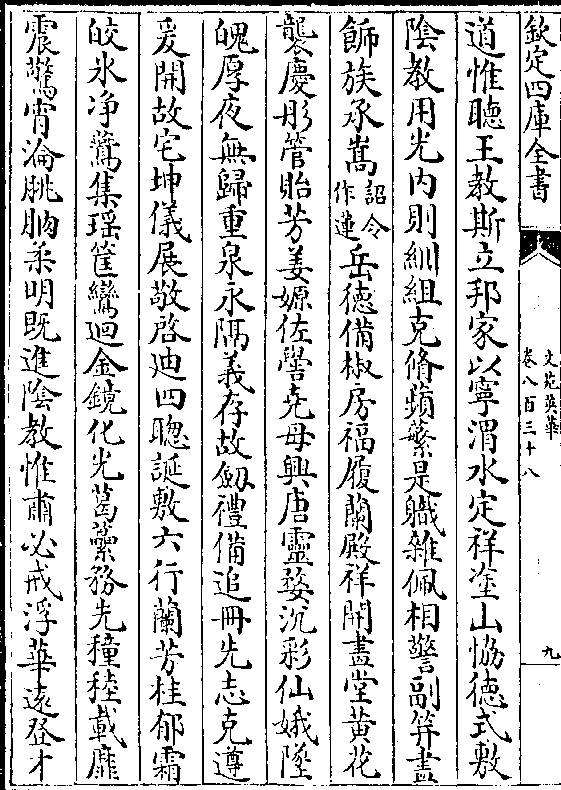 欽定四庫全書
文苑英華
卷八百三十八
九
道惟聴王教斯立邦家以寧渭水定祥塗山恊德式敷
隂教用光内則紃組克脩蘋蘩是職雜佩相警副笄盡
飾族承嵩詔令作蓮岳德備椒房福履蘭殿祥開畫堂黄花
襲慶彤管貽芳姜嫄佐嚳堯母興唐靈婺沉彩仙娥墜
魄厚夜無歸重泉永隔義存故劒禮備追冊先志克遵
爰開故宅坤儀展敬啓迪四聰誕敷六行蘭芳桂郁霜
皎氷净鷖集瑶筐鸞迴金鏡化光葛虆務先穜稑載靡
震驚宵淪朓朒柔明既進隂教惟肅必戒浮華逺登才